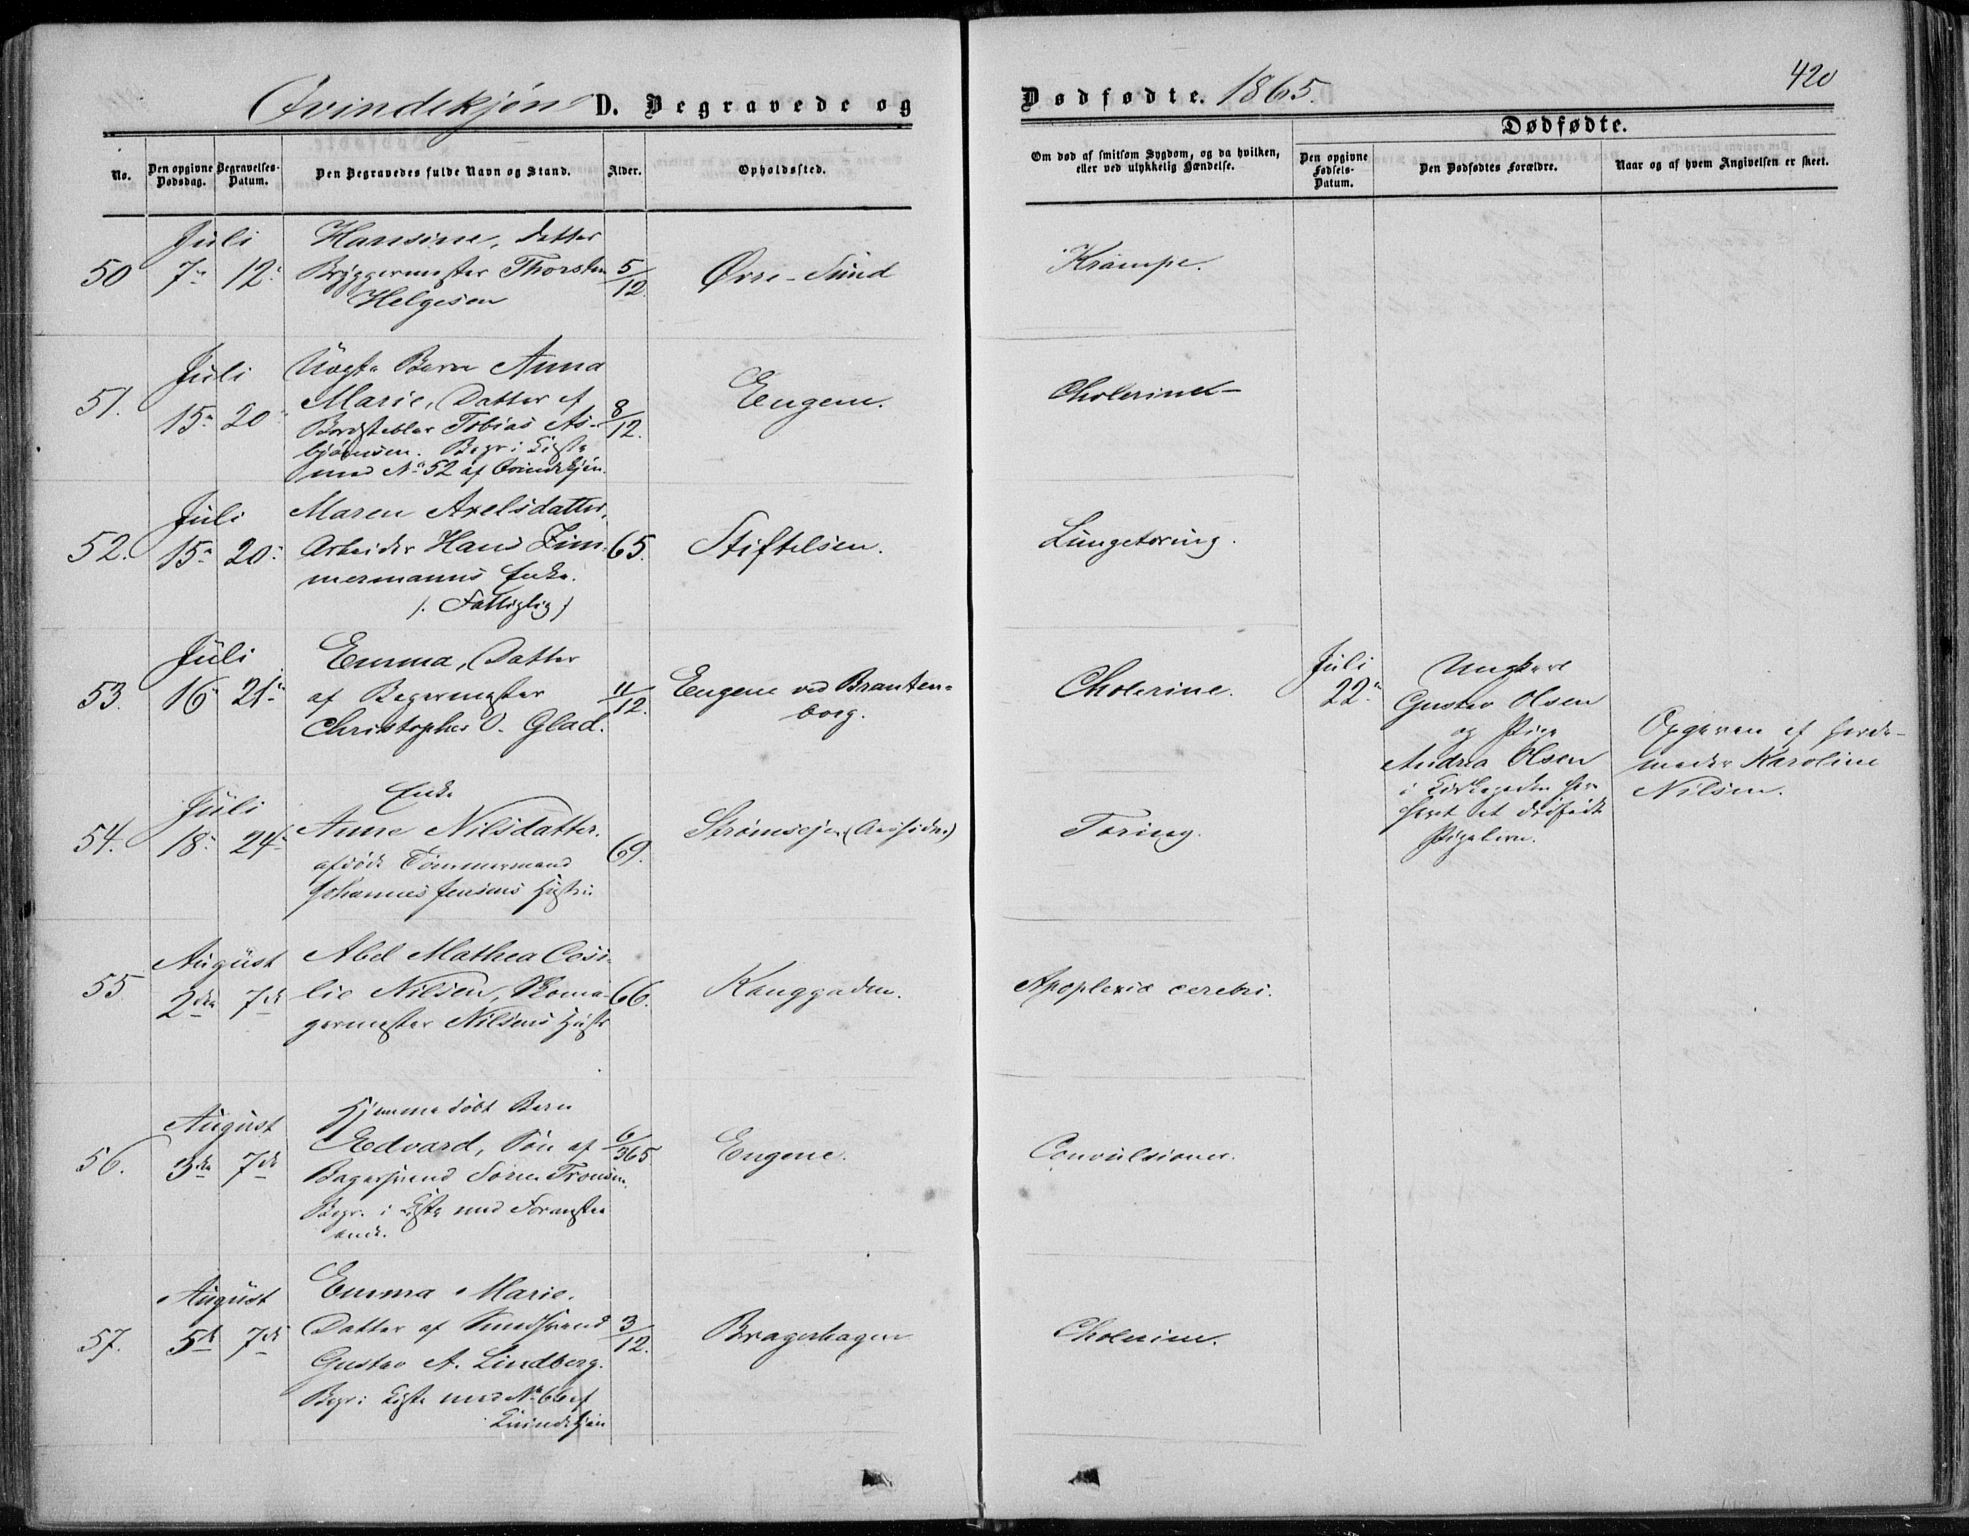 Qvindekjøn D. Begravede og
Dødfødte. 1865.
420
No.
Den opgivne Dødsdag.
Begravelses-Datum.
Den Begravedes fulde Navn og Stand.
Alder.
Opholdssted.
Om død af smitsom Sygdom, og da hvilken,
eller ved ulykkelig Hændelse.
Dødfødte.
Den opgivne Fødsels-Datum.
Den Dødfødtes Forældre.
Naar og af hvem Angivelsen er skeet.
50
Juli
7de 12te
Hansine, Datter
Bryggermester Thorsten
Helgesen
5/12
Øvre-Sund
Krampe.
51.
Juli
15de 20de
Uægte Barn Anna
Marie, Datter af
Bordstabler Tobias As-
bjørnsen. Begr. i Kiste
med No 52 af Qvindekjøn.
8/12.
Engene.
Cholerine
52.
Juli
15de 20de
Maren Axelsdatter,
Arbeider Hans Zim-
mermanns Enke.
/: Fattiglig /
65.
Stiftelsen.
Lungetæring.
53.
Juli
16de 21de
Emma, Datter
af Bagermester
Christopher O. Glad.
11/12.
Engene ved Branten-
borg.
Cholerine.
Juli
22de
Ungkarl
Gustav Olsen
og Pige
Andrea Olsen
i Kirkegaden her
havt et dødfødt
Pigebarn.
Opgiven af Jorde-
moder Karoline
Nilsen.
54.
Juli
18de 24de
Enke
Anne Nilsdatter.
afdøde Tømmermand
Johannes Jensens Hustru
69.
Strømsøen (Aassiden)
Tæring.
55
August
2den 7de
Abel Mathea Cesi-
lie Nilsen,
germester Nilsens Hustr
66.
Konggaden.
Apoplexia cerebri.
56.
August
3die 7de
Hjemmedøbt Barn
Edvard, Søn af
Bagersvend Søren Tronsen.
Begr. i Kiste med
6/365
Engene.
Convulsioner.
57.
August
5te 7de
Emma Marie.
Datter af Smedsvend
Gustav A. Lindberg.
Begr. i Kiste med No 66 af
Kvindekjøn
3/12.
Bragerhagen
Cholerine.